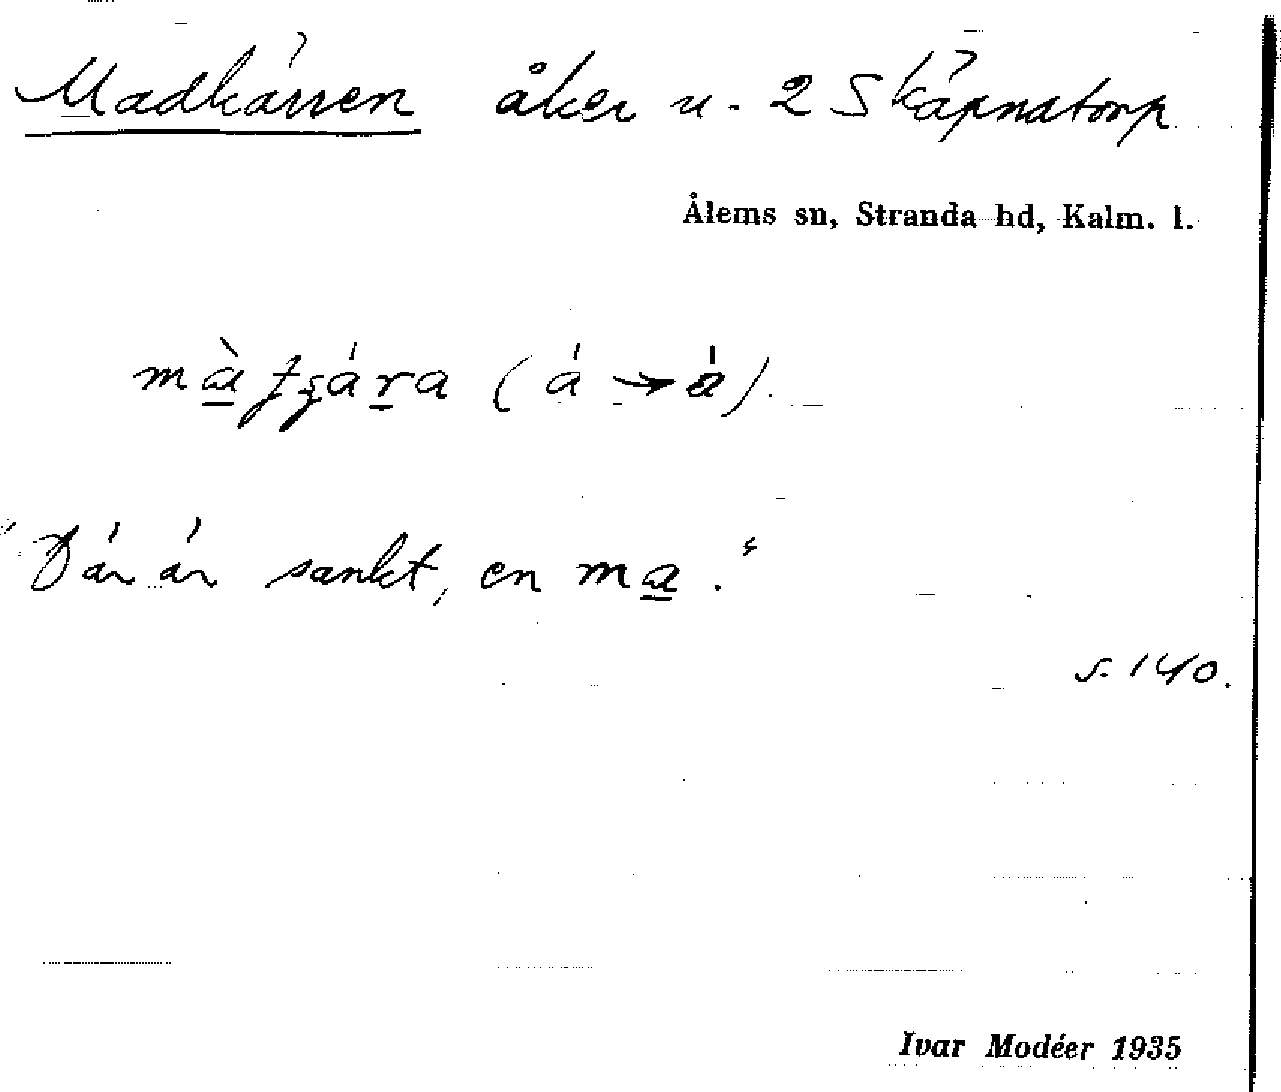 Madkärren åker u. 2 Skäpnatorp
Ålems sn, Stranda hd, Kalm. l.
(á → á̇).
"Där är sankt, en ma."
s. 140.
Ivar Modéer 1935